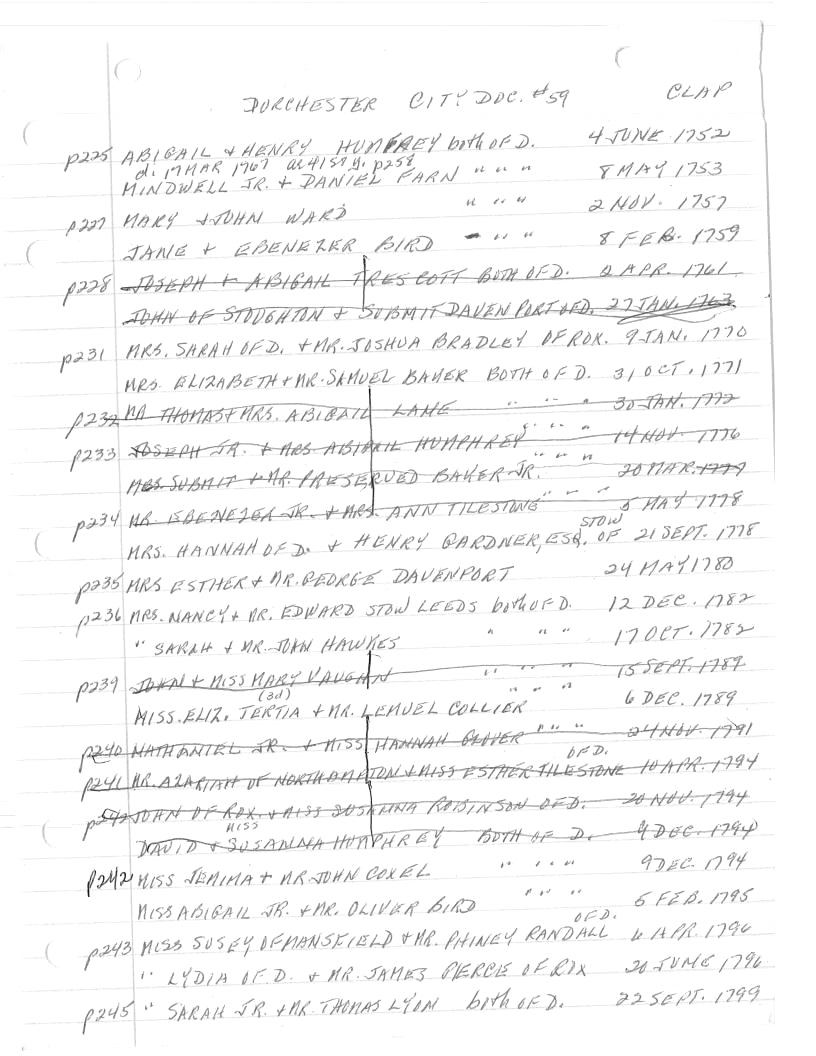 DORCHESTER CITY DOC. #59 CLAP
p225 ABIGAIL + HENRY HUMFREY both OF D. 4 JUNE 1752
d. 17 MAR 1767 ae 41 5 y. p258
MINDWELL JR. + DANIEL FARN " " " 8 MAY 1753
p227 MARY + JOHN WARD " " " 2 NOV. 1757
JANE + EBENEZER BIRD " " " 8 FEB. 1759
p228 JOSEPH + ABIGAIL TRESCOTT BOTH OF D. 2 APR. 1761
JOHN OF STOUGHTON + SUBMIT DAVENPORT OF D. 27 JAN. 1763
p231 MRS. SARAH OF D. + MR. JOSHUA BRADLEY OF ROX. 9 JAN. 1770
MRS. ELIZABETH + MR. SAMUEL BAKER BOTH OF D. 31 OCT. 1771
p232 MR THOMAS + MRS. ABIGAIL LANE " " " 30 JAN. 1772
p233 JOSEPH JR. + MRS ABIGAIL HUMPHREY " " " 14 NOV. 1776
MRS. SUBMIT + MR. PRESERVED BAKER JR. " " " 20 MAR. 1777
p234 MR. EBENEZER JR. + MRS. ANN TILESTONE " " " 5 MAY 1778
MRS. HANNAH OF D. + HENRY GARDNER, ESQ. OF STOW 21 SEPT. 1778
p235 MRS ESTHER + MR. GEORGE DAVENPORT 24 MAY 1780
p236 MRS. NANCY + MR. EDWARD STOW LEEDS both OF D. 12 DEC. 1782
" SARAH + MR. JOHN HAWKES " " " 17 OCT. 1782
p239 JOHN + MISS MARY VAUGHN " " " 15 SEPT. 1789
(3d)
MISS. ELIZ. TERTIA + MR. LEMUEL COLLIER " " " 6 DEC. 1789
p240 NATHANIEL JR. + MISS HANNAH GLOVER " " " 24 NOV. 1791
p241 MR. AZARIAH OF NORTHAMPTON + MISS ESTHER TILESTONE OF D. 10 APR. 1794
p242 JOHN OF ROX. + MISS SUSANNA ROBINSON OF D. 20 NOV. 1794
DAVID + MISS SUSANNA HUMPHREY BOTH OF D. 9 DEC. 1794
p242 MISS JEMIMA + MR JOHN COXEL " " " 9 DEC. 1794
MISS ABIGAIL JR. + MR. OLIVER BIRD " " " 5 FEB. 1795
p243 MISS SUSEY OF MANSFIELD + MR. PHINEY RANDALL OF D. 6 APR. 1796
" LYDIA OF D. + MR. JAMES PIERCE OF ROX 20 JUNE 1796
p245 " SARAH JR. + MR. THOMAS LYON both OF D. 22 SEPT. 1799